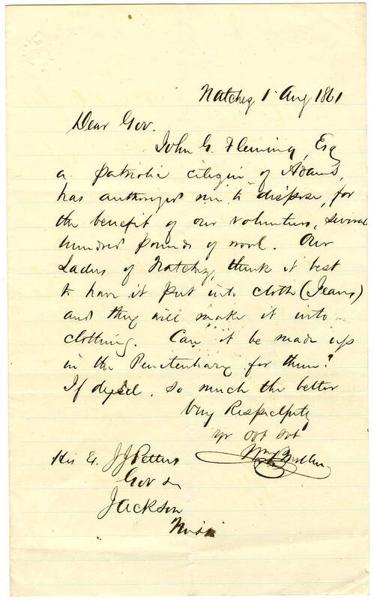 Natchez 1 Aug 1861
Dear Gov.
John G. Fleming, Esq
a patriotic citizen of Adams,
has authorized me to dispose, for
the benefit of our volunteers, several
hundred pounds of wool. Our
Ladies of Natchez, think it best
to have it put into cloth (Jeans)
and they will make it into
clothing. Can it be made up
in the Penitentiary for them?
If dyed, so much the better
Very Respectfully
yr obt svt
His Ex. J J Pettus
Gov &c
Jackson
Missi